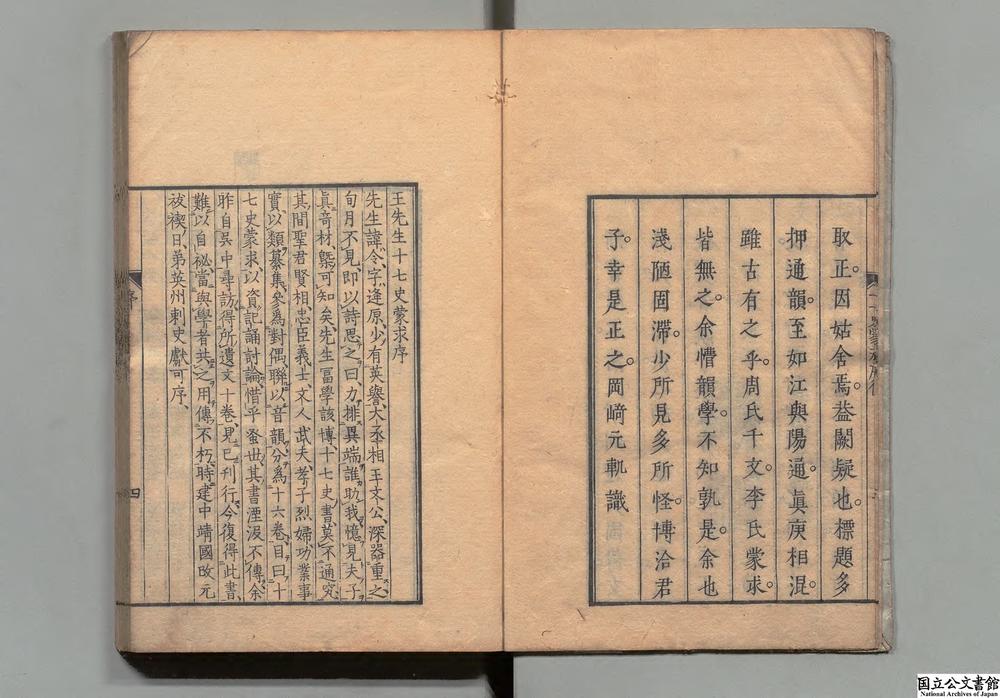 取正因姑舍焉。益闕疑也。標題多
押通韻。至如江與陽通。眞庚相混。
雖古有之乎。周氏千文。李氏蒙求。
皆無之。余懵韻學。不知孰是。余也
淺陋固滯。少所見多所怪。博洽君
子。幸是正之。岡﨑元軌識
王先生十七史蒙求序
先生諱令字逢原少有英譽大丞相王文公深器重之
旬月不見即以詩思之曰力排異端誰助我憶見夫子
眞奇材槩可知矣先生冨學該博十七史書莫不通究
其間聖君賢相忠臣義士文人武夫孝子烈婦功業事
實以類纂集參爲對偶聯以音韻分爲十六卷目曰十
七史蒙求以資記誦討論惜乎蚤世其書湮沒不傳余
昨自吳中尋訪得所遺文十卷見已刊行今復得此書
難以自祕當與學者共之用傳不朽時建中靖國改元
祓禊日弟英州刺史獻可序
序
四
国立公文書館
National Archives of Japan